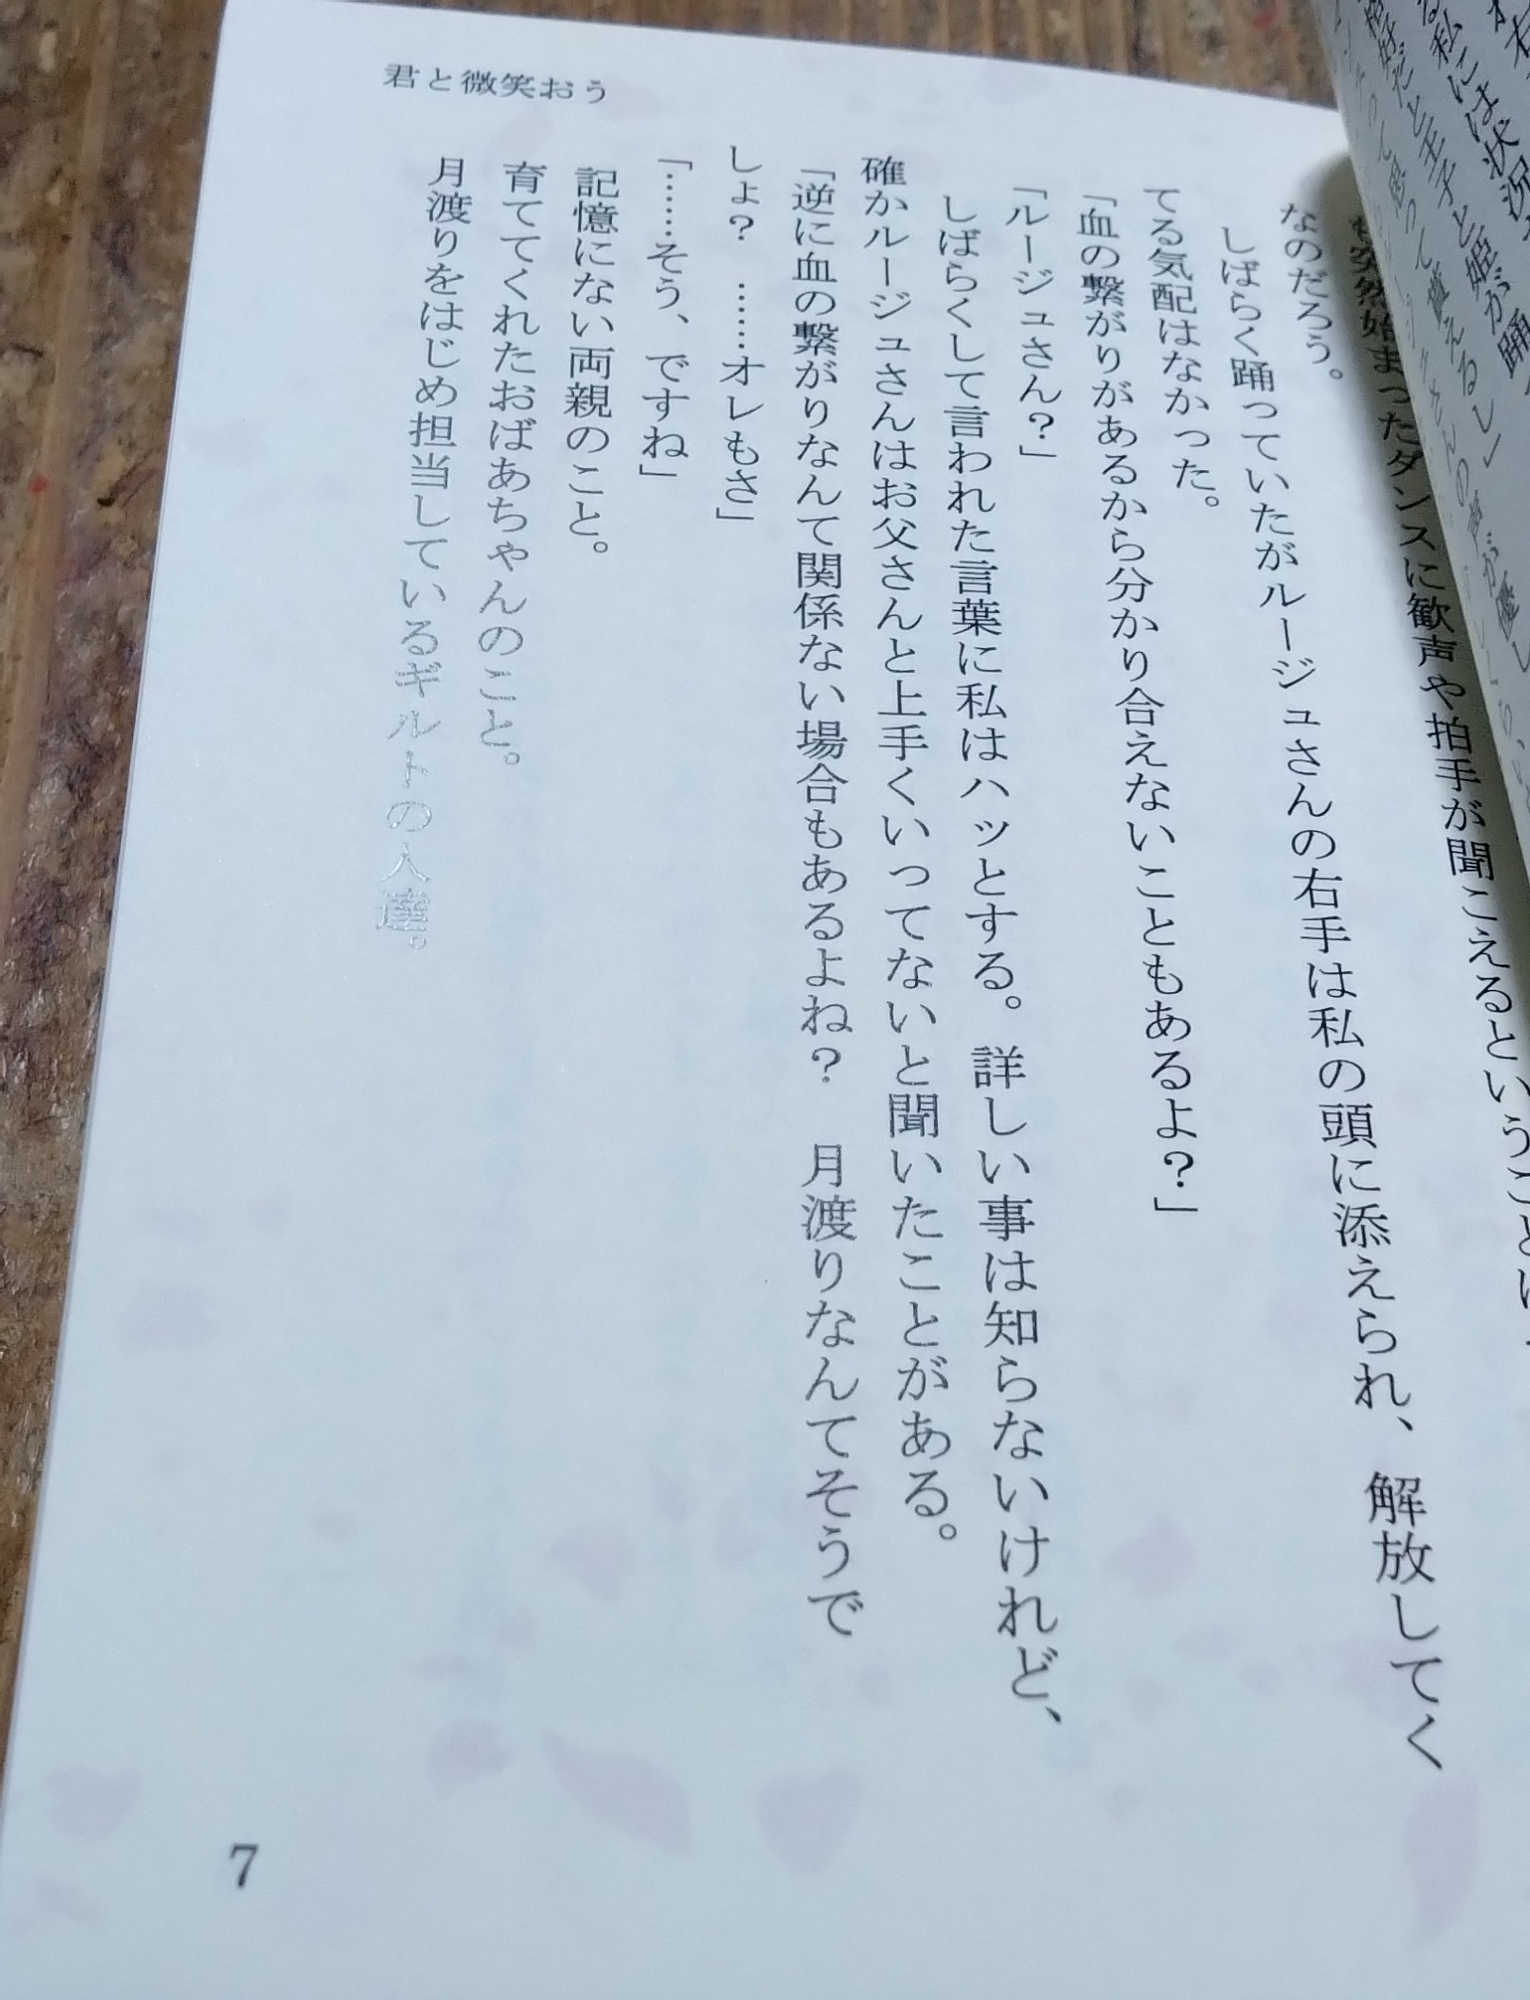 君と微笑おう
突然始まったダンスに歓声や拍手が聞こえるということは
なのだろう。
しばらく踊っていたがルージュさんの右手は私の頭に添えられ、解放してく
てる気配はなかった。
「血の繋がりがあるから分かり合えないこともあるよ？」
「ルージュさん？」
しばらくして言われた言葉に私はハッとする。詳しい事は知らないけれど、
確かルージュさんはお父さんと上手くいってないと聞いたことがある。
「逆に血の繋がりなんて関係ない場合もあるよね？　月渡りなんてそうで
しょ？　……オレもさ」
「……そう、ですね」
記憶にない両親のこと。
育ててくれたおばあちゃんのこと。
月渡りをはじめ担当しているギルトの人達。
7